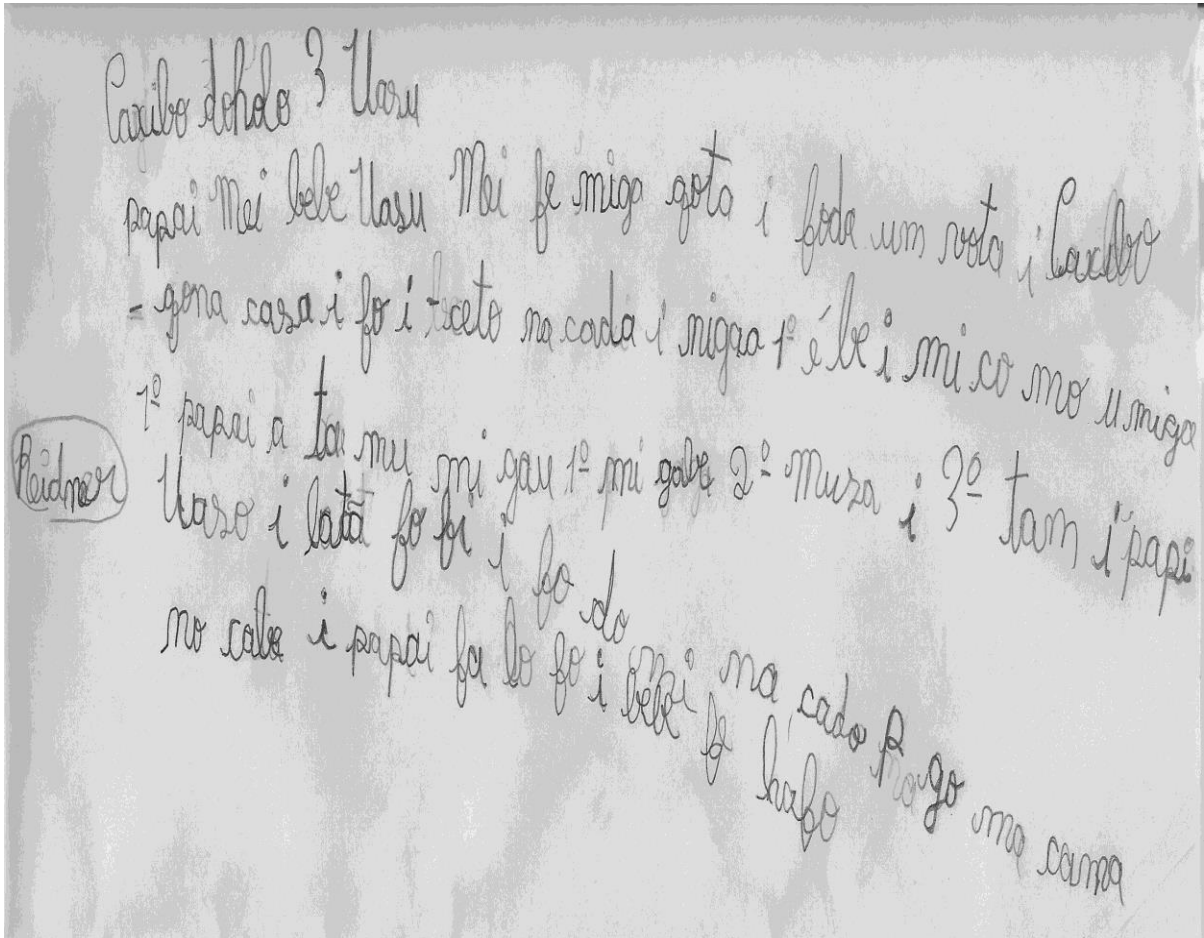 Caxibo dohdo 3 Uasu
papai Mei bebe Uasu Mei fe miga gota i foda um vota i Caxibo
= gona casa i fo i ceto na cada i migao 1º é be i mi co mo u miga
1º papai a ta mu mi gau 1º mi gabe 2º Muza i 3º tam i papi
Reidner
Uaso i latã fo fi i fo do mi na cado P go ma cama
no cabe i papai fa lo fo i bebe fe hafo